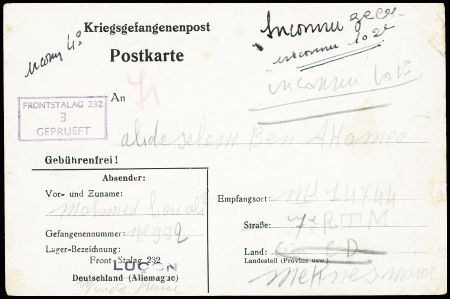 Kriegsgefangenenpost
Postkarte
Inconnu
inconnu 10e
inconnu
An
FRONTSTALAG 232
3
GEPRUEFT
abdeselem Ben AHamed
Gebührenfrei!
Absender:
Vor- und Zuname:
Mohamed
Gefangenennummer:
Lager-Bezeichnung:
Front-Stalag 232
LUÇON
Deutschland (Allemagne)
Empfangsort: Mle 14744
Straße: 7e RTM
Land:
Landesteil (Provinz usw.)
Meknes Maroc